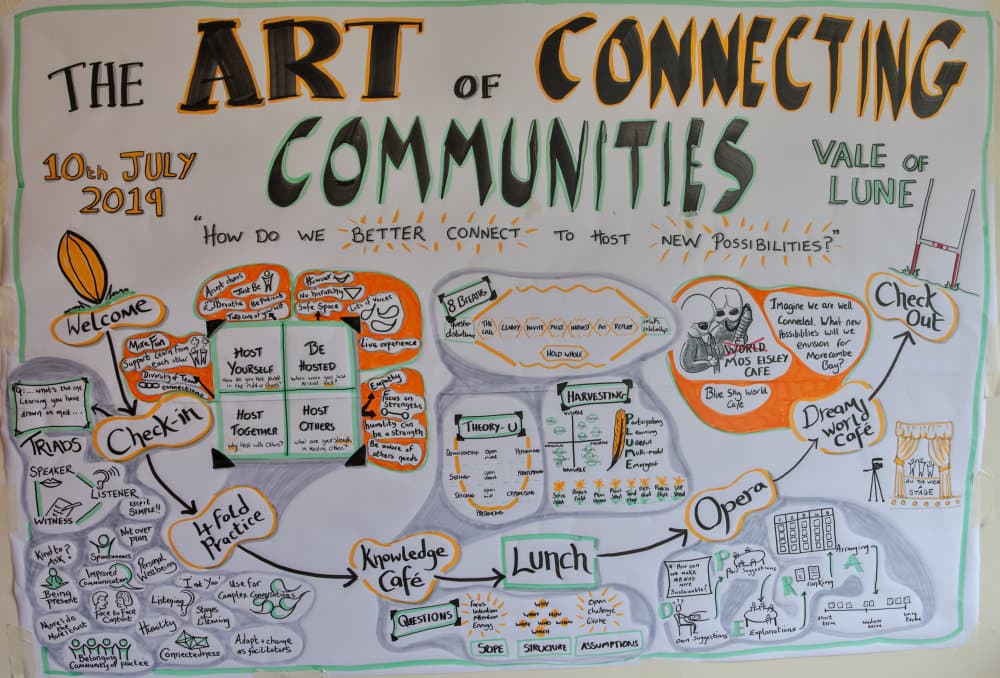 THE ART OF CONNECTING
COMMUNITIES
10th JULY
2019
VALE OF
LUNE
"HOW DO WE BETTER CONNECT TO HOST NEW POSSIBILITIES?"
Welcome
Check-in
4 fold
Practice
Knowledge
Café
Lunch
Opera
Dream
World
Café
Check
Out
learning you have
drawn on most...
TRIADS
SPEAKER
LISTENER
WITNESS
keep it
SIMPLE!!
Not over
plan
Kind to?
Ask?
Spontaneous
Improved
Communication
Personal
Wellbeing
Being
present
Face to Face
Contact
Listening
"I see You"
Stages
of
Listening
Use for
Complex Conversations
Humility
Belonging
Community of practice
Connectedness
Adapt + change
as facilitators
More Fun
Support
Learn from
each other
Diversity of Team
connections
Accept chaos
Just Be
Breathe
Be Patient
Take care of yourself
Humour
No hierarchy
Safe Space
Lots of Voices
Live experience
HOST
YOURSELF
BE
HOSTED
HOST
TOGETHER
Why Host with Others?
HOST
OTHERS
What are your strengths
in Hosting others?
Empathy
Focus on
Strengths
humility can
be a strength
Be aware of
others needs
8 BREATHS
THE
CALL
CLARIFY
INVITE
MEET
HARVEST
ACT
REFLECT
HOLD WHOLE
THEORY-U
DOWNLOADING
SEEING
SENSING
PRESENCING
CRYSTALISING
PROTOTYPING
PERFORMING
open
mind
open
heart
open
will
HARVESTING
VISIBLE
INVISIBLE
Participatory
Learning
Useful
Multi-modal
Emergent
QUESTIONS
Focus
Intention
Attention
Energy
WHY
WHAT HOW
WHICH
Open
Change
Evoke
SCOPE
STRUCTURE
ASSUMPTIONS
WORLD
MOS EISLEY
CAFE
Imagine we are well
Connected. What new
Possibilities will we
envision for
Morecambe
Bay?
Blue Sky World
Cafe
ALL THE WORLD
A
STAGE
Q: How can
we make
sustainable?
O
P
E
R
A
Own Suggestions
Pair Suggestions
Explanations
Ranking
Arranging
Short
term
Medium
term
Long
term